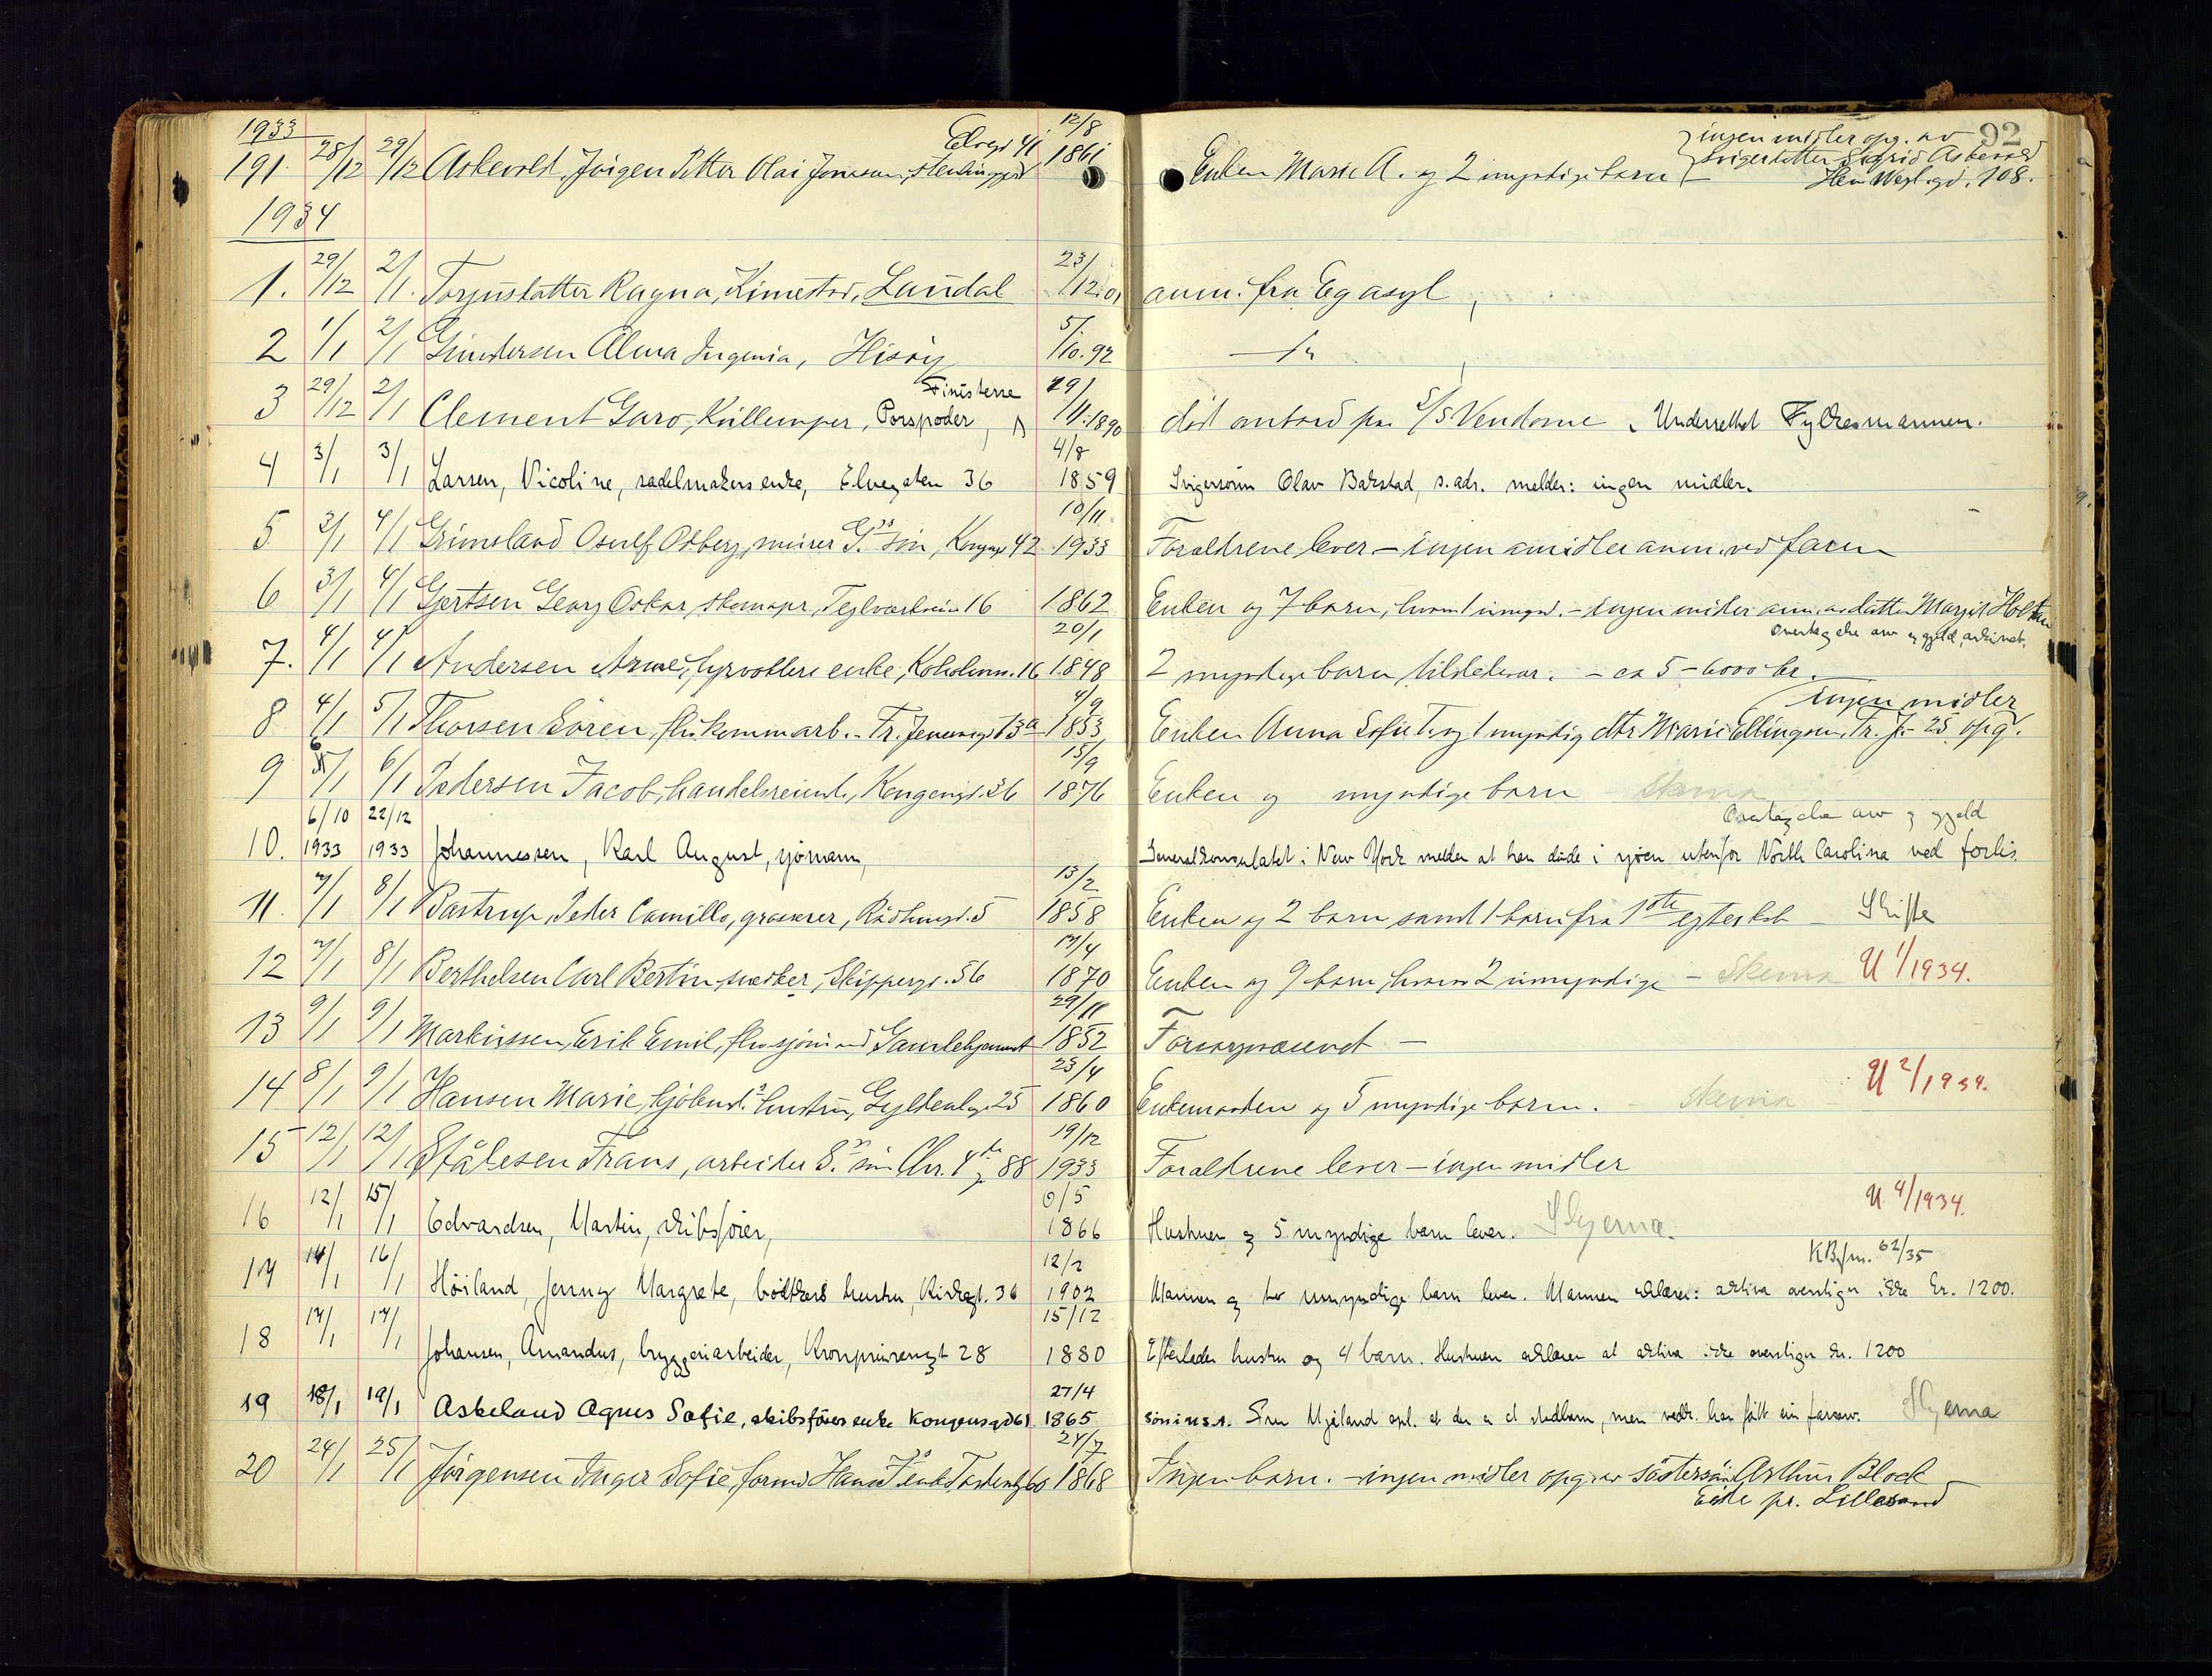 92
1933
191. 28/12 29/12 Askevold, Jörgen Petter Olai Jonassen, Elvegt 41 12/8 1861 Enken Marie A. og 2 myndige barn ingen midler opg. av
svigerdatter Sigrid Askevold
Hen. Wergl.gd. 108.
1934
1. 29/12 2/1. Torjusdatter Ragna, Kimestad, Laudal 23/12.01 anm. fra Eg asyl
2 1/1 2/1 Gundersen Alma Ingenia, Hisöy 5/10.92
3 29/12 2/1 Clement Garo, Kullemper, Porspoder, Finisterre 29/11.1890 död ombord paa S/S Vendome. Underrettet Fylkesmannen.
4 3/1 3/1 Larsen, Nicoline, sadelmakers enke, Elvegaten 36 4/8 1859 Svigersönn Olav Bakstad, s. adr. melder: ingen midler.
5 3/1 4/1 Grimsland Osulf Osberg, murer G.s sön, Kongsgt 42 10/11 1933 Foraldrene lever - ingen midler anm. ved faren
6 3/1 4/1 Gjertsen Georg Oskar, skomaker, Teglverksvei 16 1862 Enken og 7 barn, hvorav 1 umynd. - ingen midler anm. av datter Margit Holthe
7. 4/1 4/1 Andersen Anne, fyrvokters enke, Kokolemm. 16 20/1 1848 2 myndige barn, tilstede var. - ca 5-6000 kr.
Overtagelse arv og gjeld, arkivert.
8 4/1 5/1 Thorsen Sören, fhv kommarb. - Fr. Jensensgt 13a 4/9 1853 Enken Anna Sofie T. og 1 myndig dtr Marie Ellingsen, Fr. J. 25 opg. ingen midler
9 6/1 6/1 Pedersen Jacob, handelsreisende, Kongensgt. 36 15/9 1876 Enken og myndige barn skema
10. 6/10 1933 22/12 1933 Johannessen, Karl August, sjömann, Generalkonsulatet i New York melder at han döde i sjöen utenfor North Carolina ved forlis
Overtagelse arv og gjeld
11. 7/1 8/1 Bastrup, Peder Camillo, grosserer, Rådhusgt. 5 13/2 1858 Enken og 2 barn samt 1 barn fra 1ste egteskab - Skifte
12 7/1 8/1 Berthelsen Carl Bertin snedker, Skippergt. 56 17/4 1870 Enken og 9 barn, hvorav 2 umyndige - Skema U 1/1934.
13 9/1 9/1 Markussen, Erik Emil, fhv sjömand Gamlehjemmet 29/11 1852 Forsorgsvæsenet -
14 8/1 9/1 Hansen Marie, kjöbmd. hustru, Gyldenløvesgt 25 23/4 1860 Enkemanden og 5 myndige barn. skema U 2/1934.
15 12/1 12/1 Ståhlesen Frans, arbeider S.s sön Chr. 4de g 88 19/12 1933 Foraldrene lever - ingen midler
16 12/1 15/1 Edvardsen, Martin, skibsförer, 0/5 1866 Hustruen og 5 myndige barn lever. Skjema. U 4/1934.
17 14/1 16/1 Höiland, Jenny Margrete, bödtkers hustru, Kirkegt. 36 12/2 1902 Mannen og to umyndige barn lever. Mannen erklærer: aktiva overstiger ikke kr. 1200.
KBfm. 62/35
18 17/1 17/1 Johansen, Amandus, bryggeriarbeider, Kronprinsensgt 28 15/12 1880 Efterlader hustru og 4 barn. Hustruen erklærer at aktiva ikke overstiger kr. 1200
19 18/1 19/1 Askeland Agnes Sofie, skibsförers enke Kongensgd 61 27/4 1865 Fru Mjåland opl. at der er et stedbarn, men vedk. har fått sin farsarv. Skjema
20 24/1 25/1 Jörgensen Inger Sofie, form. Hans J.s enke Tordenskj 60 24/7 1868 Ingen barn. - ingen midler opg. av söstersön Arthur Block
Eide pr. Lillesand